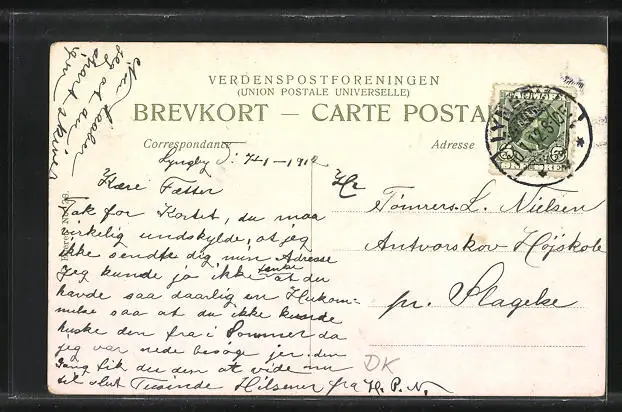 VERDENSPOSTFORENINGEN
(UNION POSTALE UNIVERSELLE)
BREVKORT — CARTE POSTA
Correspondance
Adresse
Lyngby D: 7-1-1912
Kære Fætter
Tak for Kortet, du maa
virkelig undskylde, at jeg
ikke sendte dig min Adresse
Jeg kunde jo ikke tænke at du
havde saa daarlig en Hukom-
melse saa at du ikke kunde
huske den fra i Sommer da
jeg var nede besøge jer. den
Gang fik du den at vide nu
til slut Tusinde Hilsener fra H. P. N.
Nu haaber
jeg at du
snart skriver
igen
Hr
Tømrers. L. Nielsen
Antvorskov Højskole
pr. Slagelse
DK